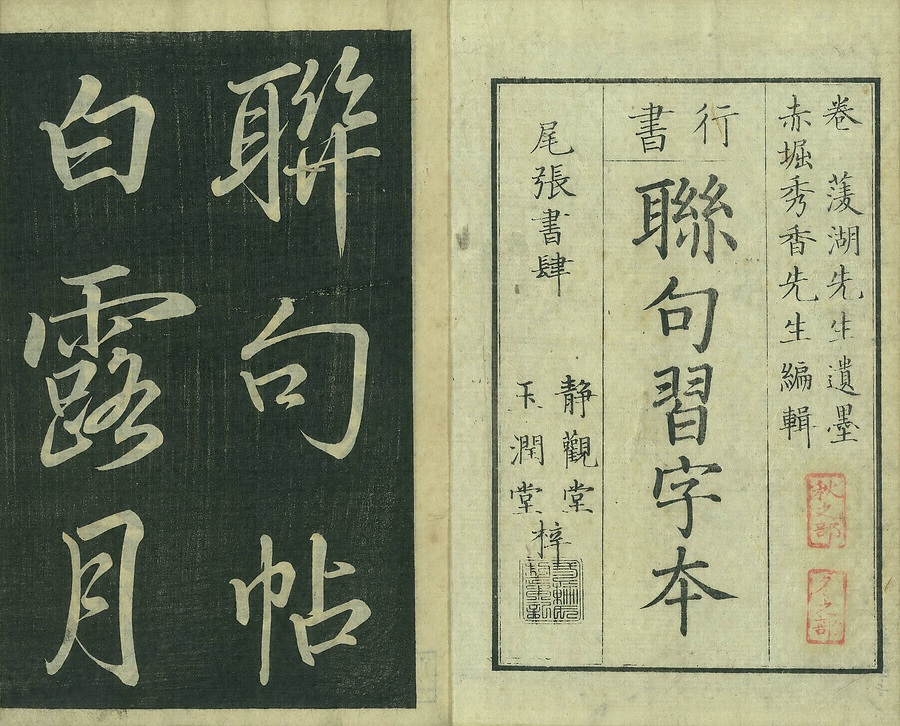 卷菱湖先生遺墨
赤堀秀香先生編輯
秋之部
行書
聯句習字本
尾張書肆
静觀堂
玉潤堂
梓
聯句帖
白露月